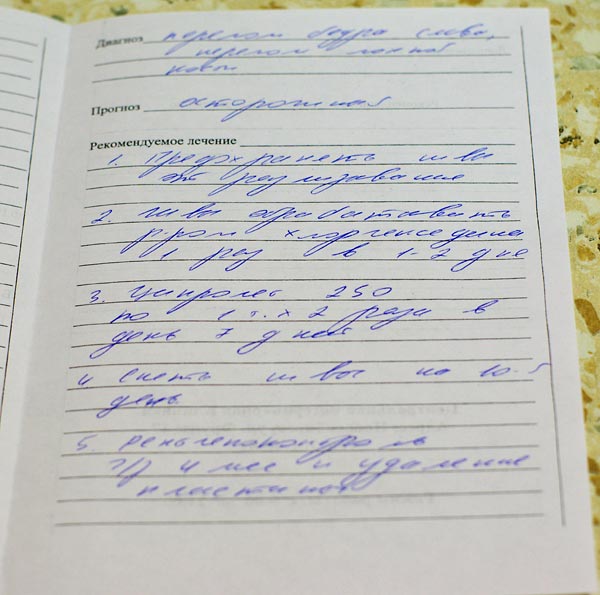 Диагноз перелом бедра слева,
перелом лонной
кости
Прогноз осторожный
Рекомендуемое лечение
1. Предохранять швы
от разлизывание
2. Швы обрабатывать
р-ром хлоргекседина
1 раз в 1-2 дня
3. Ципролет 250
по 1 т. х 2 раза в
день 7 дней
4 снять швы на 10-й
день
5. рентгенконтроль
ч/з 4 мес и удаление
пластины